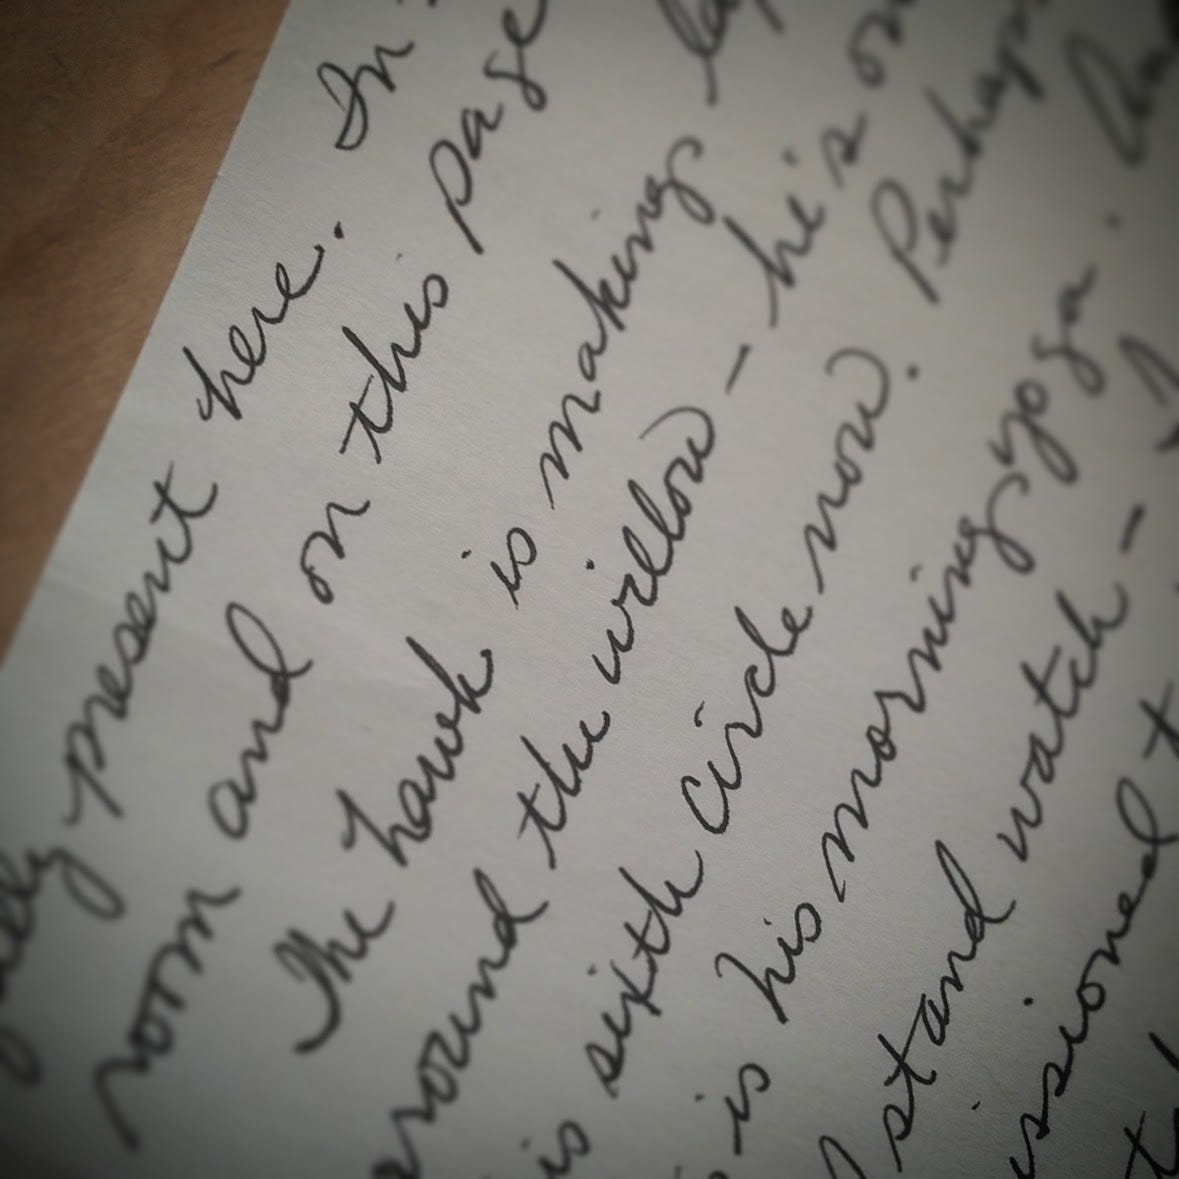 present here. In
room and on this page
The hawk is making
around the willow - he's on
is sixth circle now. Perhaps
is his morning yoga.
I stand watch - I